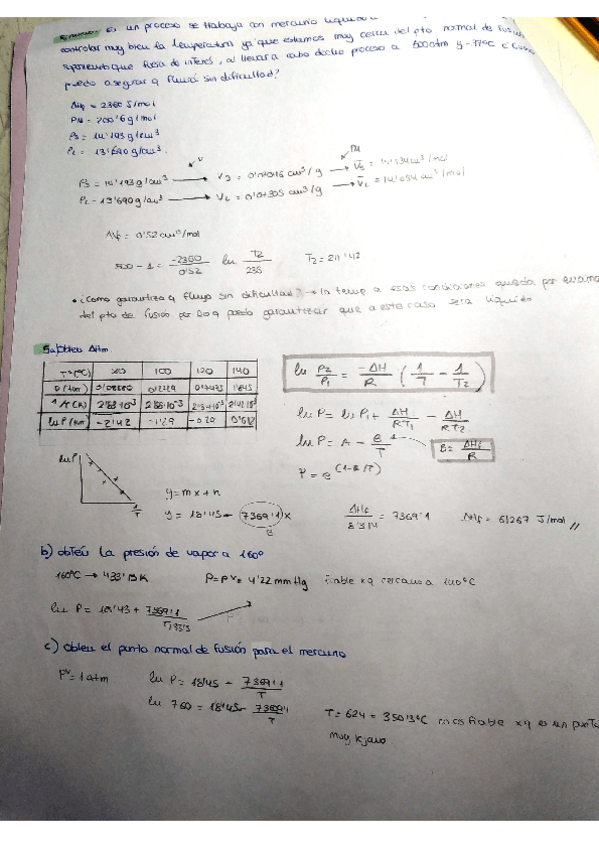 En un proceso se trabaja con mercurio líquido
controlar muy bien la temperatura ya que estamos muy cerca del pto normal de fusión
suponiendo que fuera de interés, al llevar a cabo dicho proceso a 500atm y -39°C ¿Cómo
puedo asegurar q fluirá sin dificultad?
ΔHf = 2360 J/mol
PM = 200'6 g/mol
ρs = 14'193 g/cm³
ρL = 13'690 g/cm³
ρs = 14'193 g/cm³ → Vs = 0'07046 cm³/g → V̄s = 14'134 cm³/mol
ρL = 13'690 g/cm³ → VL = 0'07305 cm³/g → V̄L = 14'654 cm³/mol
ΔVf = 0'52 cm³/mol
500 - 1 = -2360 / 0'52 ln T2 / 235 T2 =
• ¿Como garantiza q fluya sin dificultad? → la temp a esas condiciones queda por encima
del pto de fusión por lo q puedo garantizar que a este caso será líquido
a) obten ΔHm
Tª(°C) 100 120 140
P (atm)
1/T (K)
ln P (atm) -2'42 -1'29
ln P2/P1 = -ΔH/R (1/T - 1/T2)
ln P = ln P1 + ΔH/RT1 - ΔH/RT2
ln P = A - B/T B = ΔHf/R
P = e
ln P
1/T
y = mx + n
y = 18'45 - 7369'1 x
B
ΔHf / 8'314 = 7369'1 ΔHf = 61267 J/mol //
b) obtén la presión de vapor a 160°
160°C → 433'15 K P = Pv = 4'22 mmHg fiable xq cercano a 140°C
ln P = 18'43 + 7369'1
c) obten el punto normal de fusión para el mercurio
Pv = 1 atm ln P = 18'45 - 7369'1 / T
ln 760 = 18'45 - 7369'1 / T
T = 624 = 350'3°C no es fiable xq es un punto
muy lejano